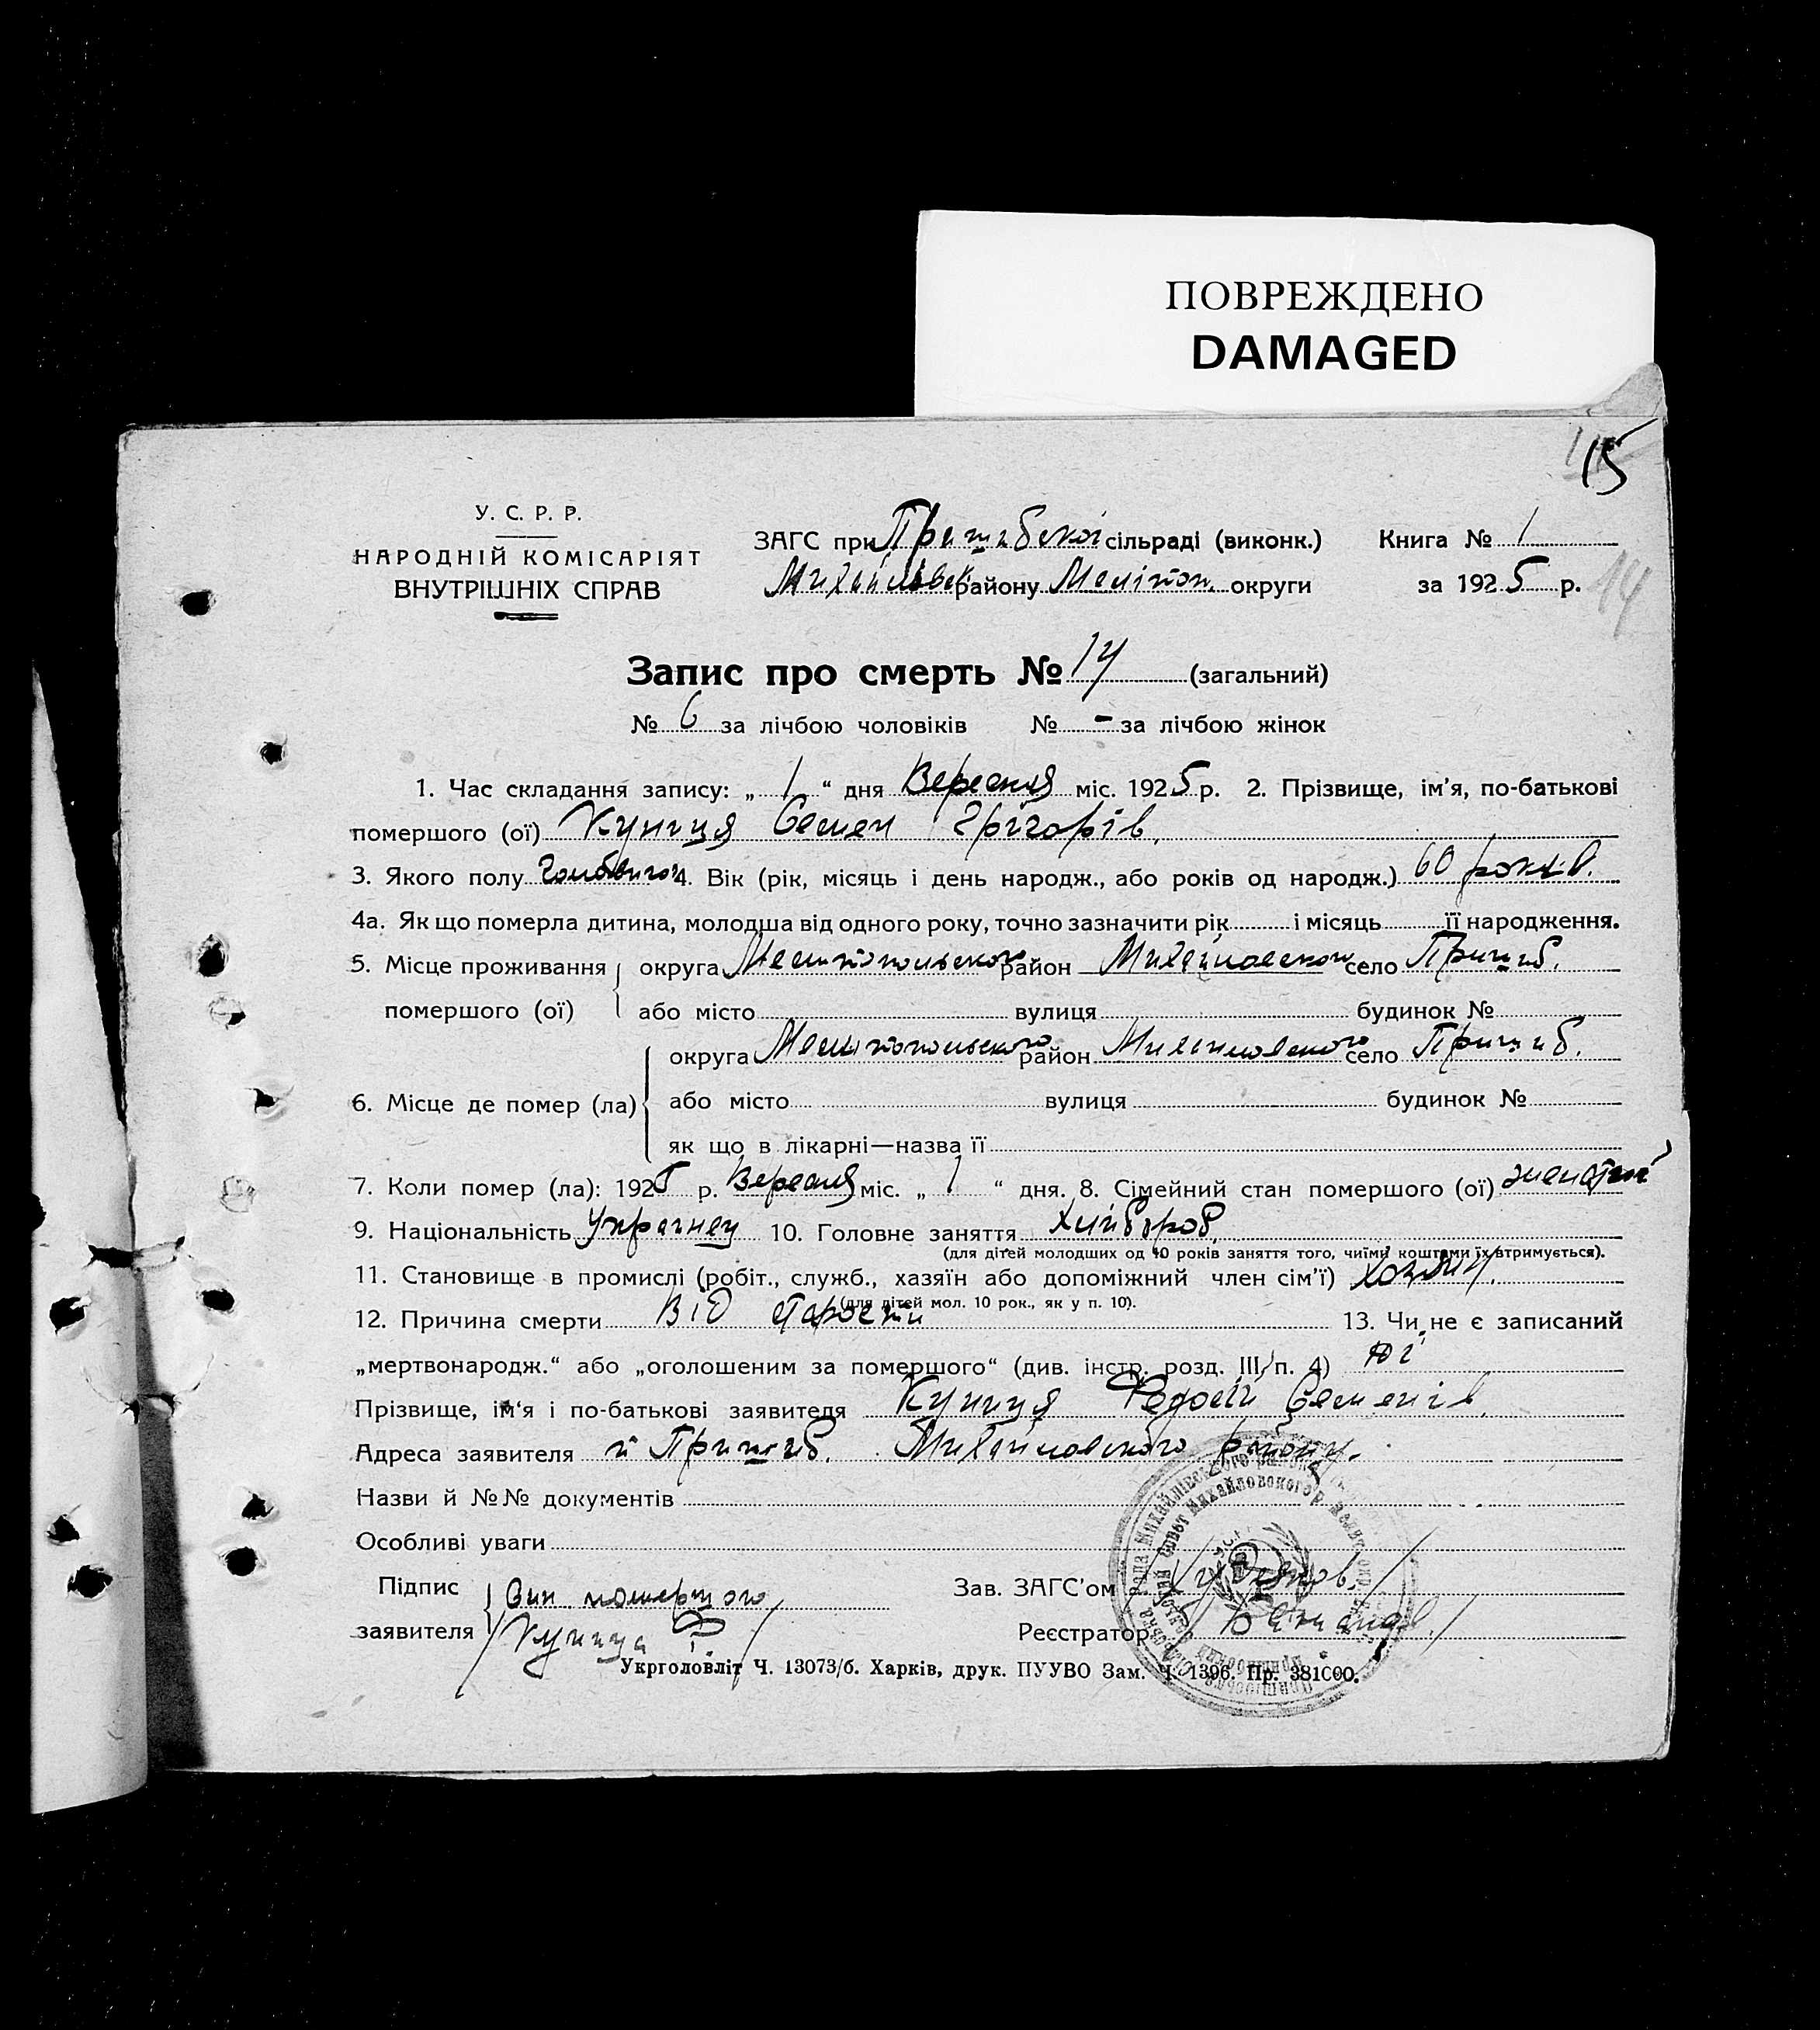 ПОВРЕЖДЕНО
DAMAGED
15
У. С. Р. Р.
НАРОДНІЙ КОМІСАРІЯТ
ВНУТРІШНІХ СПРАВ
ЗАГС при Пришибскоі сільраді (виконк.) Книга № 1
Михайлівськ району Мелітоп. округи за 1925 р.
14
Запис про смерть № 14 (загальний)
№ 6 за лічбою чоловіків № - за лічбою жінок
1. Час складання запису: „ 1 “ дня Вересня міс. 1925 р. 2. Прізвище, ім'я, по-батькові
помершого (ої) Куниця Семен Григорів.
3. Якого полу 4. Вік (рік, місяць і день народж., або років од народж.) 60 років.
4а. Як що померла дитина, молодша від одного року, точно зазначити рік і місяць її народження.
5. Місце проживання помершого (ої) округа Мелитопольского район Михайловского село Пришиб.
або місто вулиця будинок №
6. Місце де помер (ла) округа Мелитопольского район Михайловского село Пришиб.
або місто вулиця будинок №
як що в лікарні—назва її
7. Коли помер (ла): 1925 р. Вересня міс. „ 1 “ дня. 8. Сімейний стан помершого (ої) женатий
9. Національність Украінец 10. Головне заняття Хлибороб.
(для дітей молодших од 10 років заняття того, чиїми коштами їх втримується).
11. Становище в промислі (робіт., служб., хазяїн або допоміжний член сім'ї) хозяин.
(для дітей мол. 10 рок., як у п. 10).
12. Причина смерти Від старости 13. Чи не є записаний
„мертвонародж.“ або „оголошеним за помершого“ (див. інстр. розд. III, п. 4)
Прізвище, ім'я і по-батькові заявителя Куниця Федосій Семенів.
Адреса заявителя Пришиб. Михайловского району.
Назви й №№ документів
Особливі уваги
Підпис заявителя Син помершого
Куница Ф.
Зав. ЗАГС'ом
Реєстратор
Укрголовліт Ч. 13073/б. Харків, друк. ПУУВО Зам. Ч. 1396. Пр. 381000.